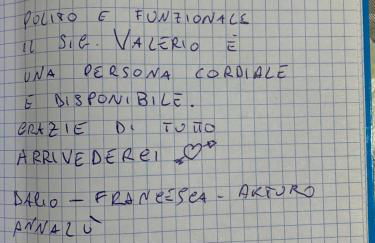 POLITO E FUNZIONALE
IL SIG. VALERIO È
UNA PERSONA CORDIALE
E DISPONIBILE.
GRAZIE DI TUTTO
ARRIVEDERCI
DARIO - FRANCESCA - ARTURO
ANNALÙ